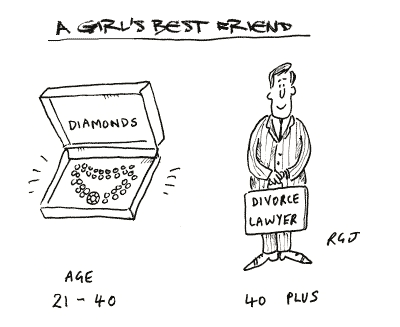 A GIRL'S BEST FRIEND
DIAMONDS
DIVORCE
LAWYER
RGJ
AGE
21 - 40
40 PLUS